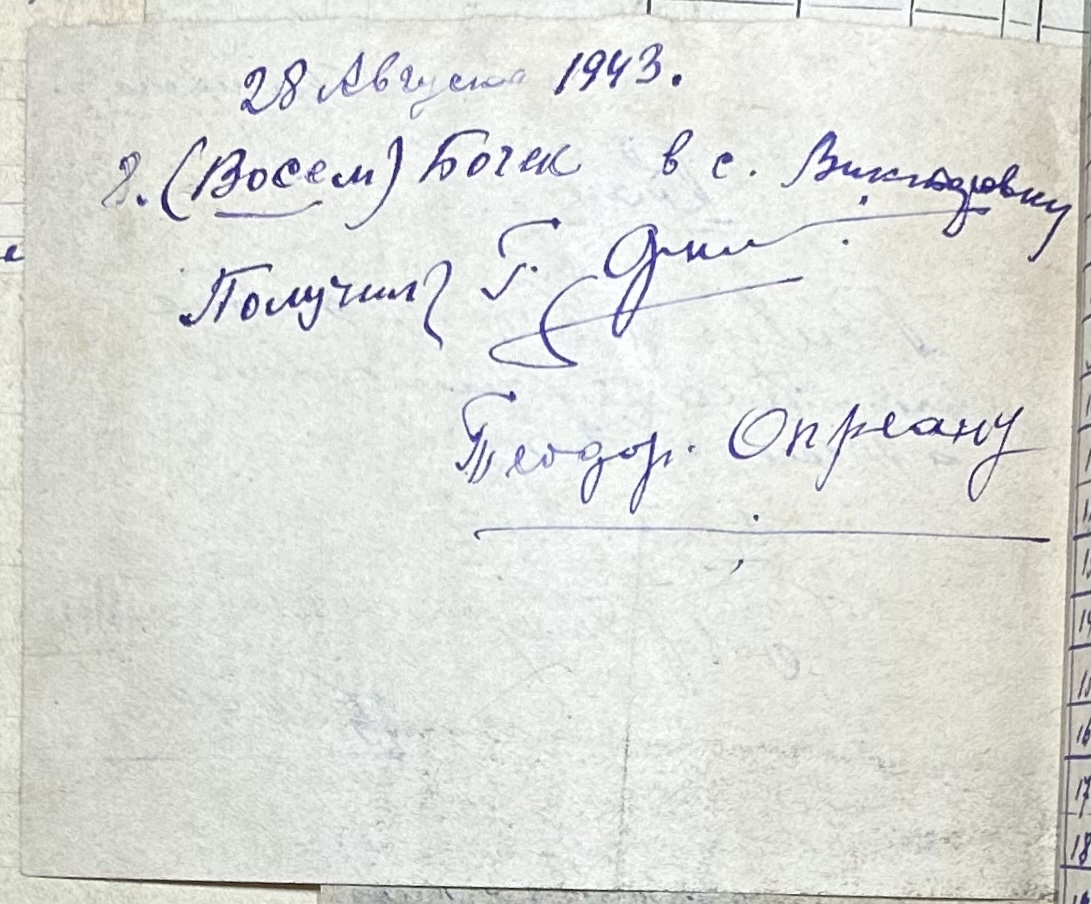 28 Августа 1943.
8. (Восем) Бочек в с. Викторовку
Получил Т.
Теодор. Опреану